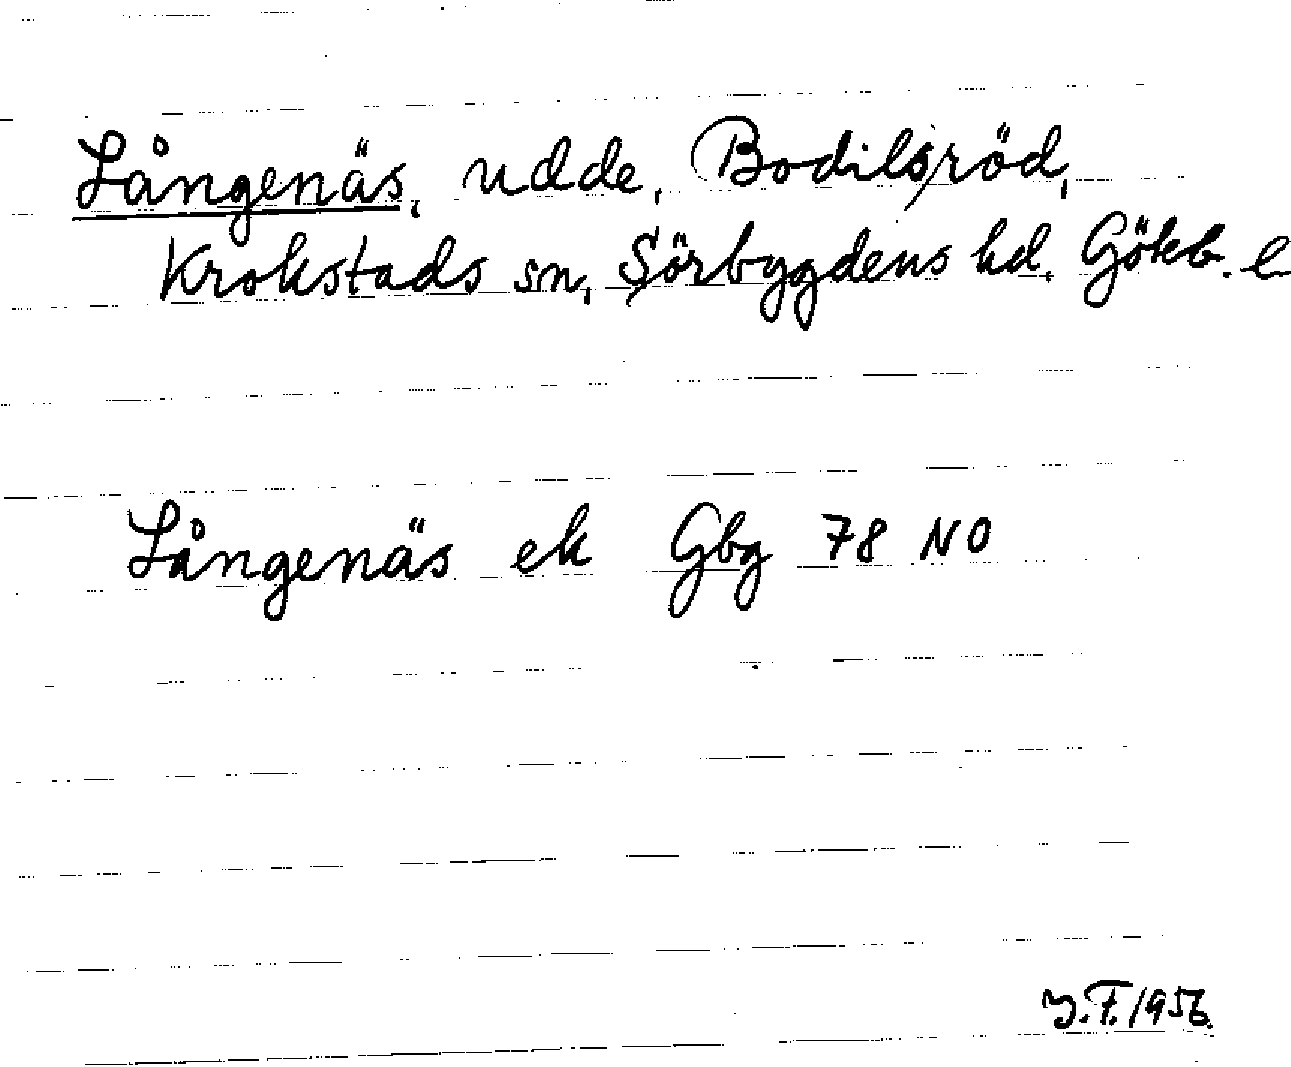 Långenäs, udde, Bodilsröd,
Krokstads sn, Sörbygdens hd, Gökb. l
Långenäs ek Gbg 78 NO
Y.F. 1956.